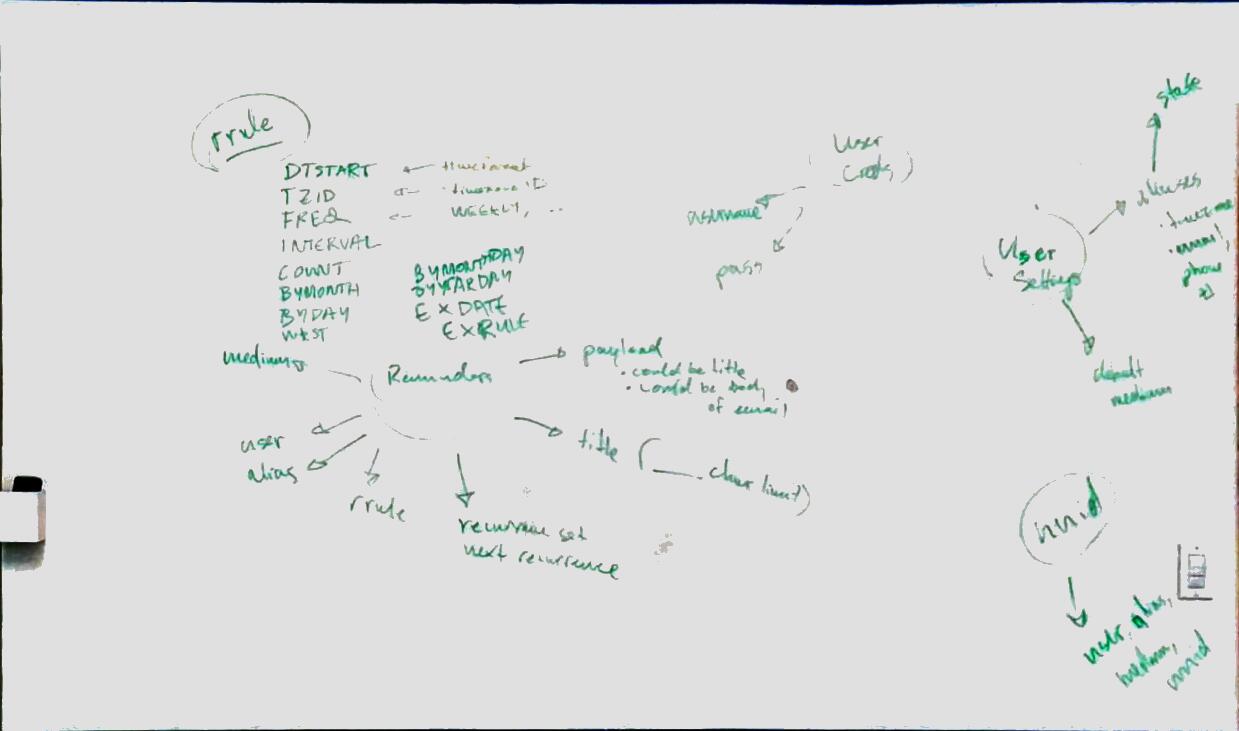 rrule
DTSTART ← time format
TZID ← timezone ID
FREQ ← WEEKLY, ..
INTERVAL
COUNT
BYMONTH
BYDAY
WKST
BYMONTHDAY
BYYEARDAY
EXDATE
EXRULE
User
Creds
username
pass
User
Settings
state
aliases
• email,
phone
default
medium
medium
Reminders
payload
• could be title
• could be body
of email
title
char limit)
user
alias
rrule
recurrence set
next recurrence
uuid
user, alias,
medium,
uuid